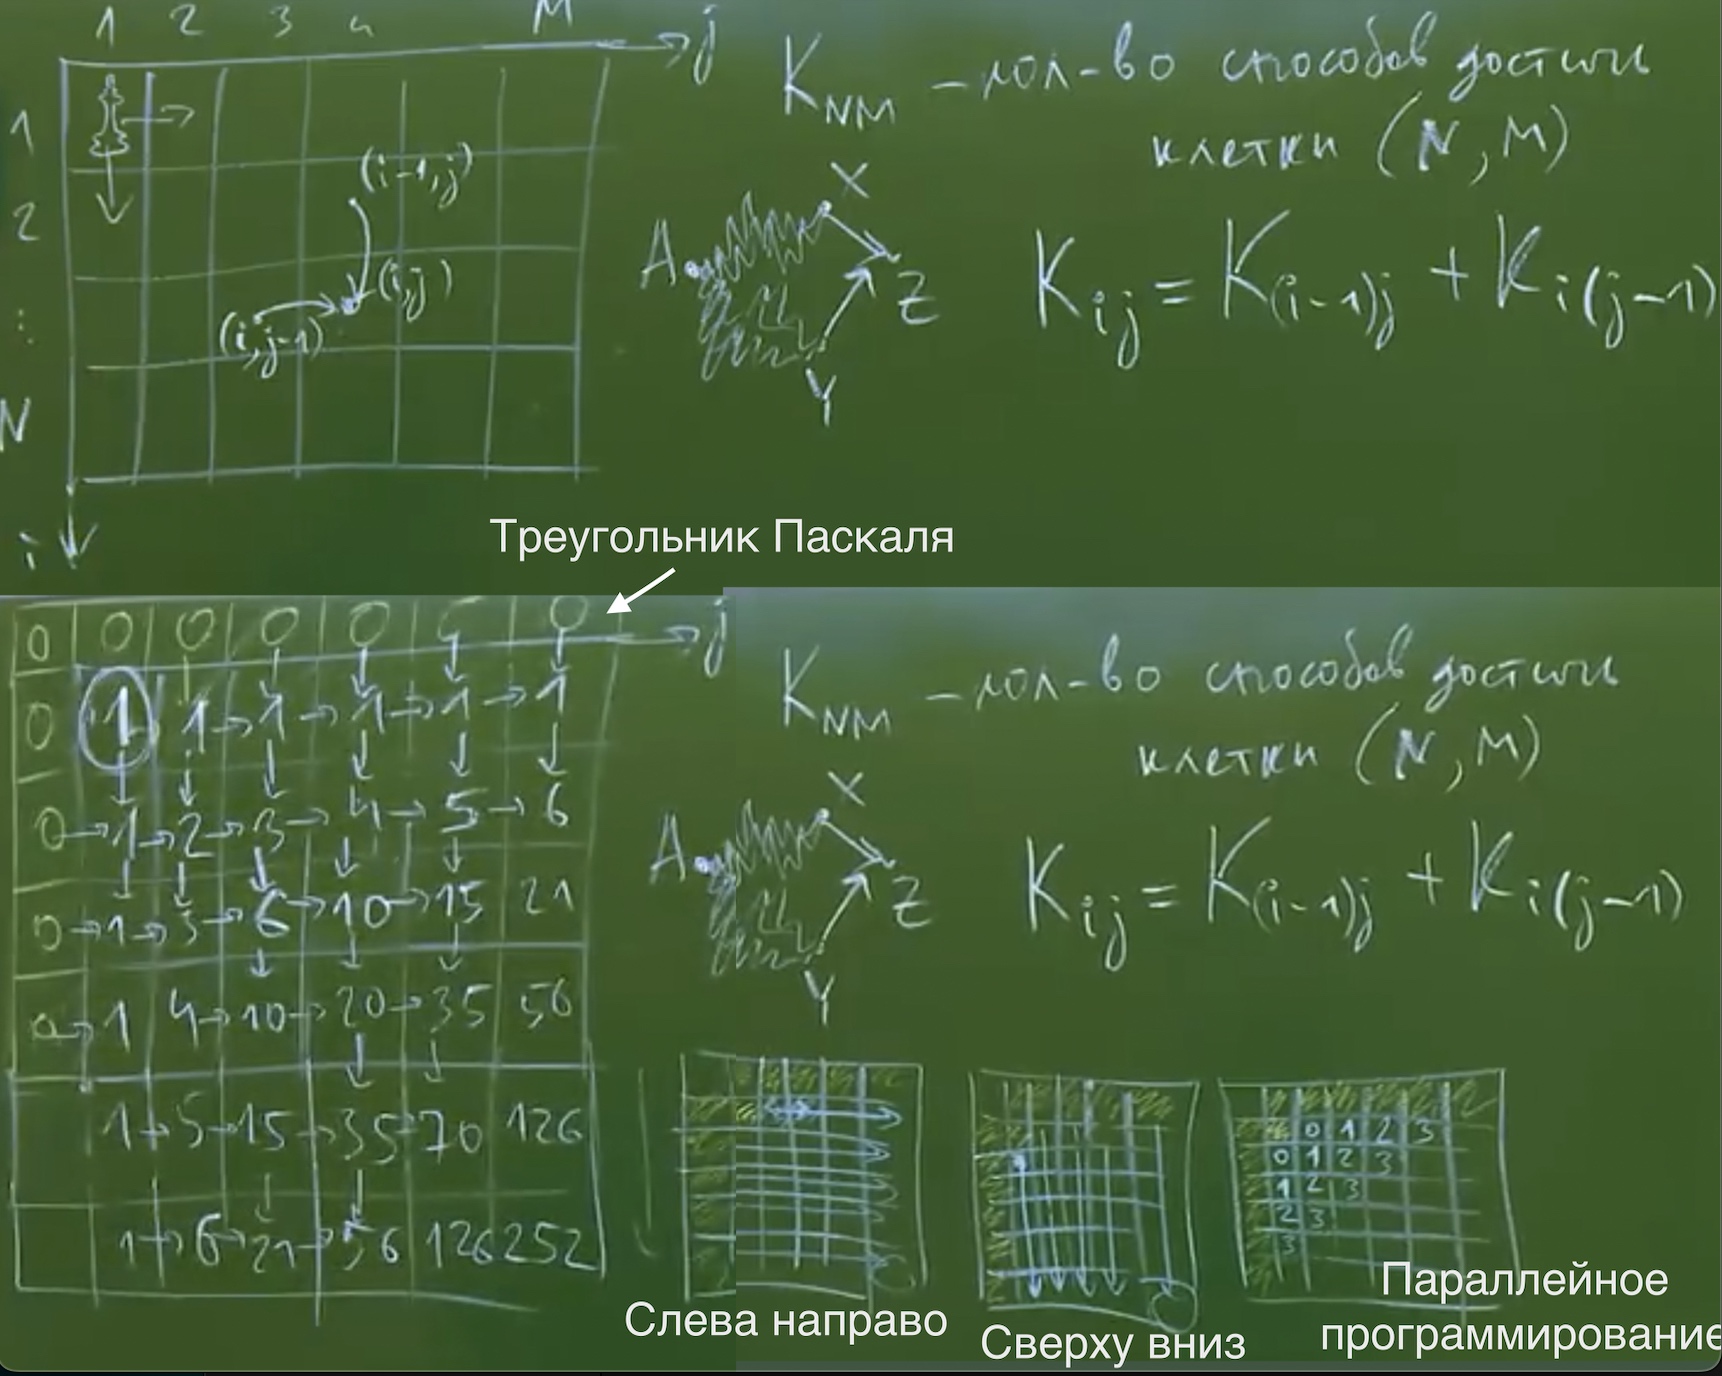 1 2 3 4 M j
K_NM - кол-во способов достичь
клетки (N, M)
1
2
:
N
i
(i-1, j)
(i, j)
(i, j-1)
A X Y Z
K_ij = K_(i-1)j + K_i(j-1)
Треугольник Паскаля
0 0 0 0 0 0 j
0 1 1 1 1 1 1
0 1 2 3 4 5 6
0 1 3 6 10 15 21
0 1 4 10 20 35 56
1 5 15 35 70 126
1 6 21 56 126 252
K_NM - кол-во способов достичь
клетки (N, M)
A X Y Z
K_ij = K_(i-1)j + K_i(j-1)
0 1 2 3
0 1 2 3
1 2 3
2 3
3
Слева направо
Сверху вниз
Параллейное
программирование